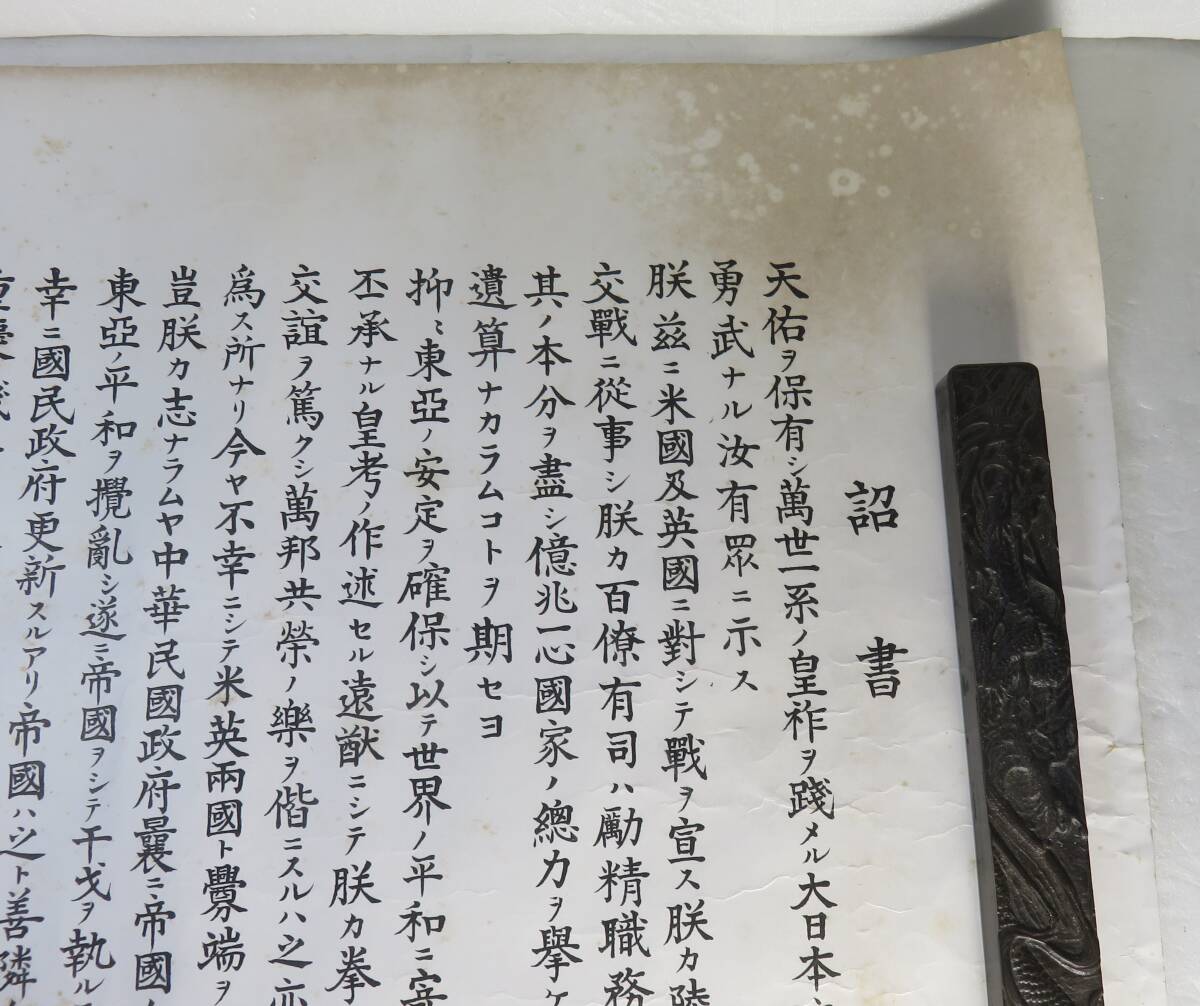 詔書
天佑ヲ保有シ萬世一系ノ皇祚ヲ踐メル大日本
勇武ナル汝有眾ニ示ス
朕茲ニ米國及英國ニ對シテ戰ヲ宣ス朕カ陸
交戰ニ從事シ朕カ百僚有司ハ勵精職務
其ノ本分ヲ盡シ億兆一心國家ノ總力ヲ擧ケ
遺算ナカラムコトヲ期セヨ
抑〻東亞ノ安定ヲ確保シ以テ世界ノ平和ニ寄
丕承ナル皇考ノ作述セル遠猷ニシテ朕カ拳
交誼ヲ篤クシ萬邦共榮ノ樂ヲ偕ニスルハ之亦
爲ス所ナリ今ヤ不幸ニシテ米英兩國ト釁端ヲ
豈朕カ志ナラムヤ中華民國政府曩ニ帝國
東亞ノ平和ヲ攪亂シ遂ニ帝國ヲシテ干戈ヲ執ル
幸ニ國民政府更新スルアリ帝國ハ之ト善隣